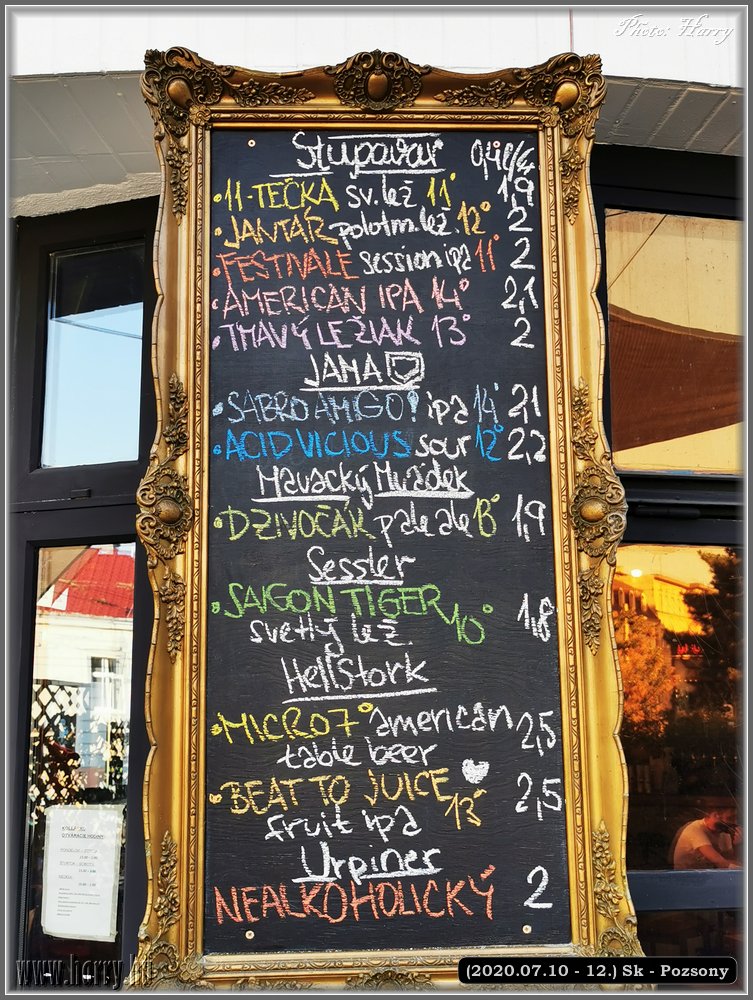 Photo: Harry
Stupavar 0,4l/€
•11-TEČKA sv. lež. 11° 1,9
•JANTÁR polotm. lež. 12° 2
•FESTIVALE session ipa 11° 2
•AMERICAN IPA 14° 2,1
•TMAVÝ LEŽIAK 13° 2
JAMA
•SABRO AMIGO! ipa 14° 2,1
•ACID VICIOUS sour 12° 2,2
•DZIVOČÁK pale ale 13° 1,9
Sessler
•SAIGON TIGER 10° 1,8
svetlý lež.
HellStork
•MICRO 7° american 2,5
table beer
•BEAT TO JUICE 13° 2,5
fruit ipa
Urpiner
NEALKOHOLICKÝ 2
OTVÁRACIE HODINY
www.harry.hu
(2020.07.10 - 12.) Sk - Pozsony